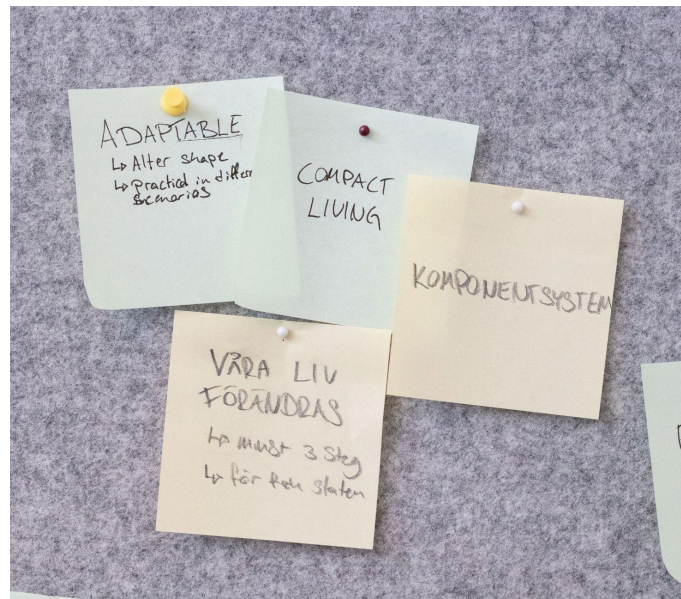 ADAPTABLE
↳ Alter shape
↳ Practical in differ
scenarios
COMPACT
LIVING
KOMPONENTSYSTEM
VÅRA LIV
FÖRÄNDRAS
↳ minst 3 steg
↳ för